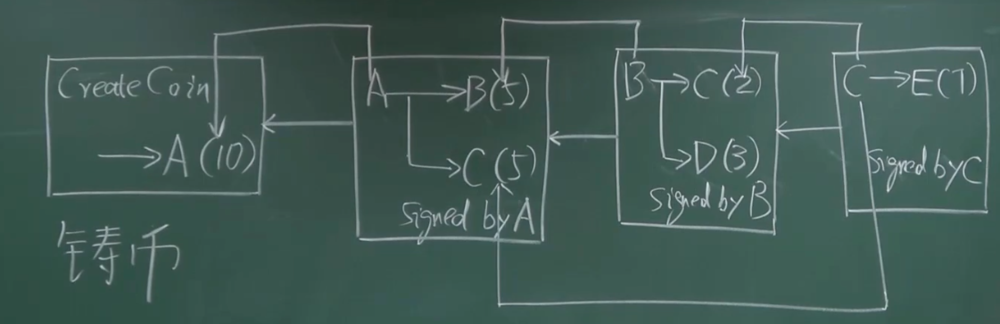 Create Coin
A(10)
铸币
A B(5)
C(5)
Signed by A
B C(2)
D(3)
Signed by B
C E(7)
Signed by C